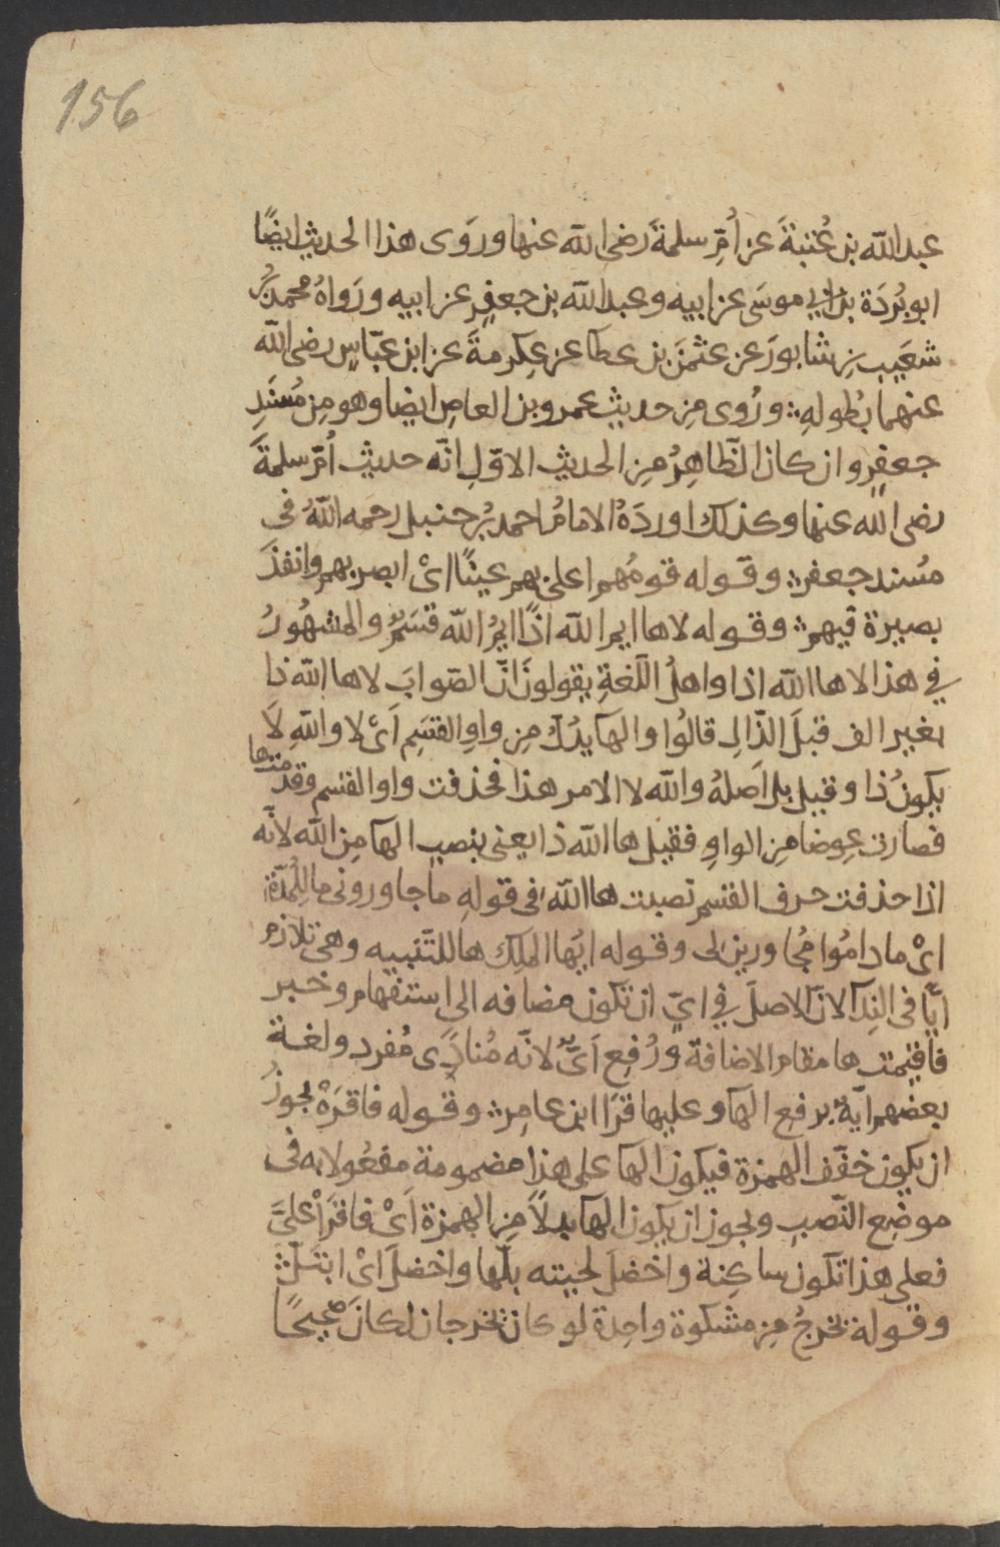 156
عبد الله بن عُتبةَ عن أُمِّ سلمةَ رضي الله عنها وروَى هذا الحديث ايضًا
ابو بُردَة بن ابي موسَى عن ابيه وعبد الله بن جعفرٍ عن ابيه ورَواهُ محمدُ بنُ
شعَيب بن شابورَ عن عثمنَ بن عطا عن عِكرمةَ عن ابن عبّاسٍ رضى الله
عنهما بطُولهِ ورُوى مِن حديث عمرو بن العاصِ ايضا وهو مِن مُسنَدِ
جعفرٍ وان كان الظّاهِرُ مِن الحديث الاوّلِ انّه حديث أُمّ سلمةَ
رضى الله عنها وكذلك اوردَهُ الامامُ احمد بنُ حنبل رحمه اللهُ فى
مُسند جعفر وقوله قومُهم اعلى بهم عينًا اىْ ابصر بهم وانفذَ
بصيرة فيهم وقوله لاها ايم الله اذًا ايمُ الله قسَمٌ والمشهُورُ
في هذا لاها الله اذا واهلُ اللّغةِ يقولونَ انّ الصّوابَ لاها الله ذا
بغير الف قبلَ الذّالِ قالُوا والها بدَلٌ مِن واوِ القسَمِ اَىْ لا واللهِ لَا
يكونُ ذا وقيل بل اَصلهُ والله لا الامر هذا فحُذفت واو القسَم وقدمت ها
فصارت عِوضا مِن الواوِ فقيل ها الله ذا يعنى بنصبِ الها مِن الله لانّه
اذا حذفت حرف القسم نصبت ها الله فى قولهِ ما جاورونى ما للمُدّة
اىْ ما دامُوا مُجاورين لى وقوله ايّها الملِك ها للتّنبيه وهى تلازم
ايًّا فى النِدآ لانّ الاصلَ في ايّ ان تكون مضافه الى استفهام وخبر
فاقيمت ها مقام الاضافة ورُفع اَىٌّ لانّه مُنادًى مُفرد ولغة
بعضهم ايّهُ برفع الها وعليها قرَا ابن عامِر وقوله فاقرَهْ يجوزُ
ان يكون خفّف الهمزة فيكون الها على هذا مضمومة مفعُولا به فى
موضِع النّصبِ ويجوز ان يكون الها بدلاً مِن الهمزة اَىْ فاقرَأْ علىَّ
فعلى هذا تكون ساكِنة واخضلَ لحيته بلّها واخضلَّ اىْ ابتلّ
وقوله تخرجُ مِن مشكوة واحِدة لو كان تخرجان لكانَ صحيحًا